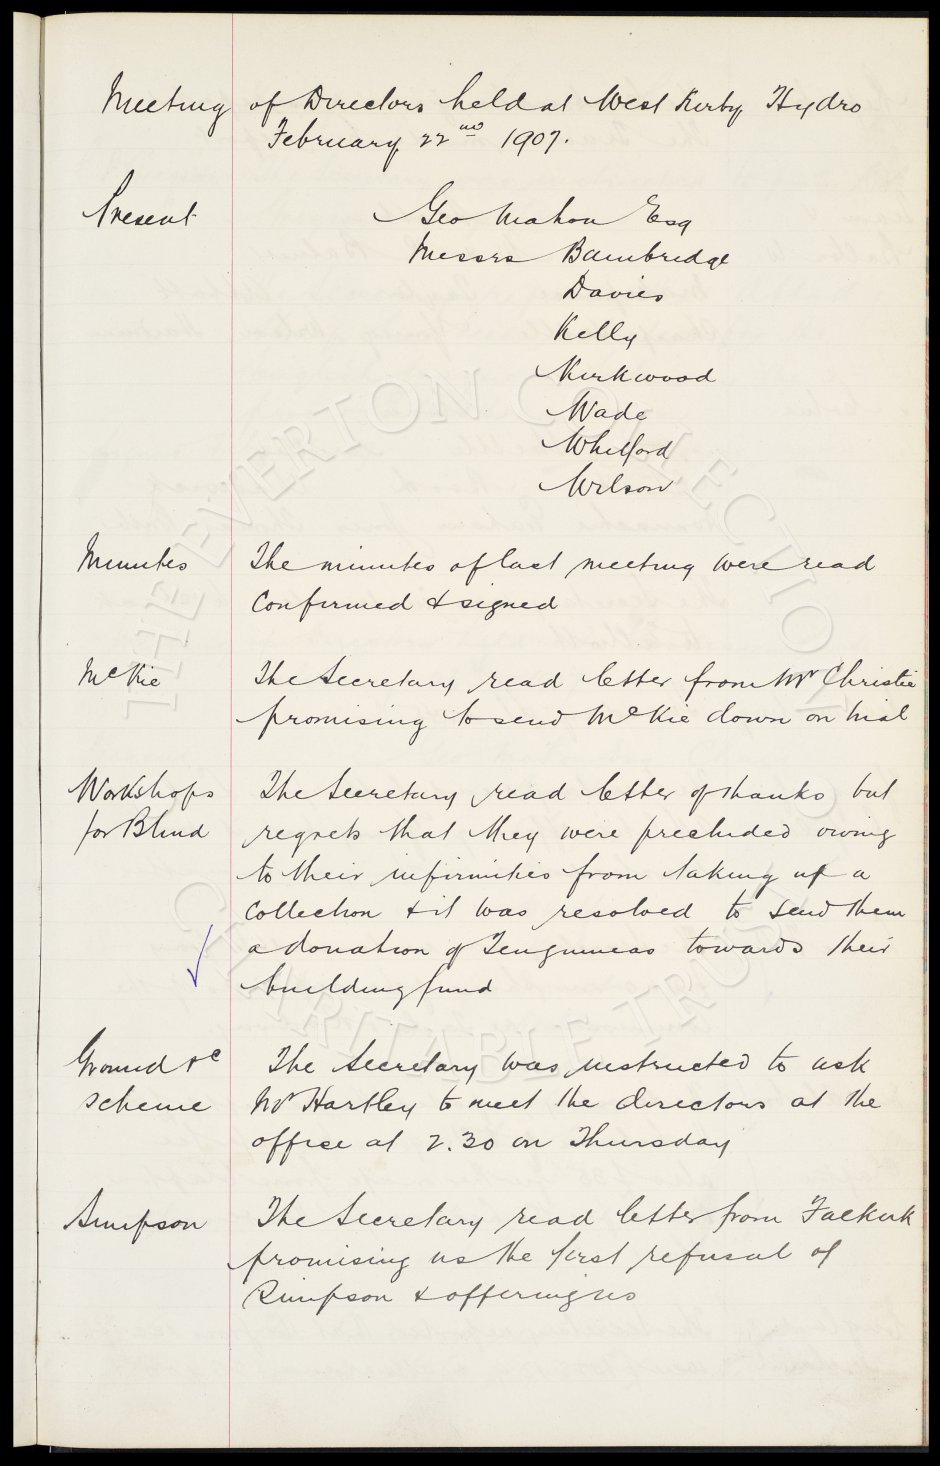 Meeting of Directors held at West Kirby Hydro
February 22nd 1907.
Present Geo Mahon Esq
Messrs Bainbridge
Davies
Kelly
Kirkwood
Wade
Whitford
Wilson
Minutes The minutes of last meeting were read
confirmed & signed
McKie The Secretary read letter from Mr Christie
promising to send McKie down on trial
Workshops The Secretary read letter of thanks but
for Blind regrets that they were precluded owing
to their infirmities from taking up a
collection & it was resolved to send them
a donation of Ten guineas towards their
building fund
Ground &c The Secretary was instructed to ask
scheme Mr Hartley to meet the directors at the
office at 2.30 on Thursday
Simpson The Secretary read letter from Falkirk
promising us the first refusal of
Simpson & offering us
THE EVERTON COLLECTION
CHARITABLE TRUST